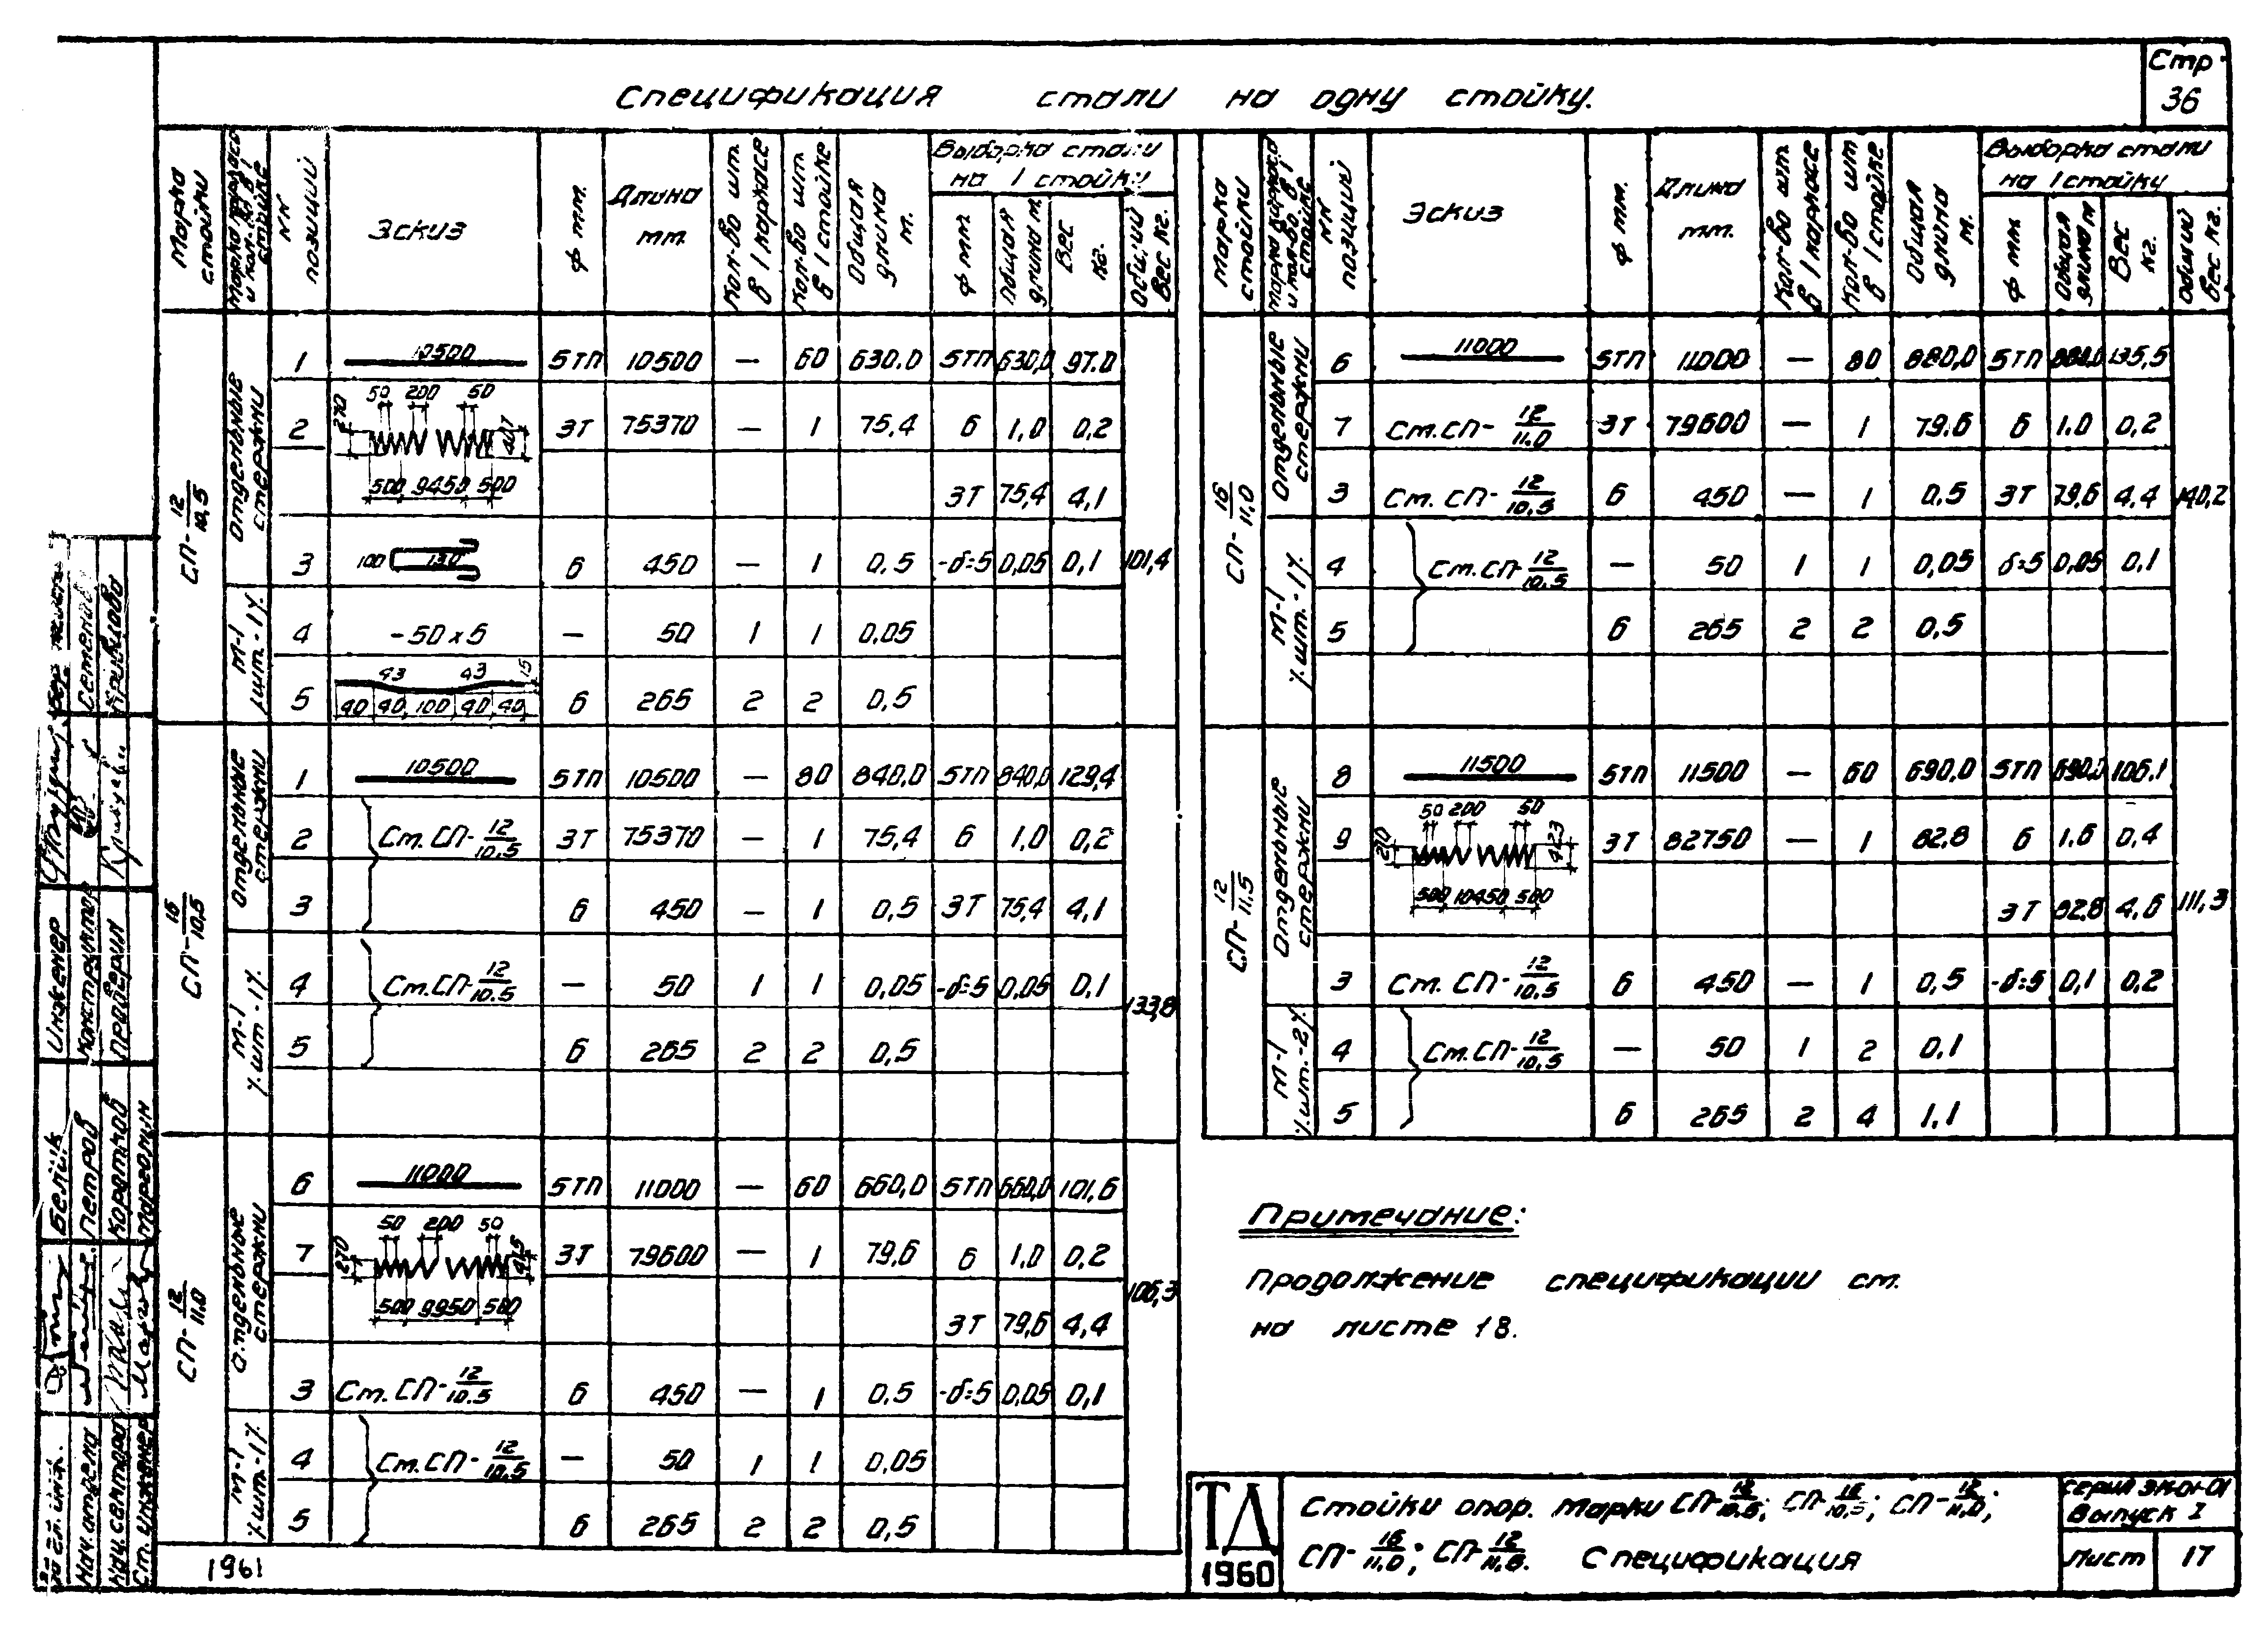 Стр.
36
Спецификация стали на одну стойку.
Марка стойки | Марка каркаса и кол-во в 1 стойке | NN позиций | Эскиз | ф мм. | Длина мм. | Кол-во шт. в 1 каркасе | Кол-во шт. в 1 стойке | Общая длина м. | Выборка стали на 1 стойку
ф мм | Общая длина м. | Вес кг. | Общий вес кг.
СП-12/10,5 | Отдельные стержни | 1 | 10500 | 5ТП | 10500 | — | 60 | 630.0 | 5ТП | 630,0 | 97.0 | 101,4
2 | 50 200 50 270 407 500 9450 500 | 3Т | 75370 | — | 1 | 75,4 | 6 | 1,0 | 0,2
3Т | 75,4 | 4,1
3 | 100 130 | 6 | 450 | — | 1 | 0,5 | -δ=5 | 0,05 | 0,1
М-1 шт.-1 | 4 | -50х5 | — | 50 | 1 | 1 | 0,05
5 | 43 43 15 40 40 100 40 40 | 6 | 265 | 2 | 2 | 0,5
СП-16/10,5 | Отдельные стержни | 1 | 10500 | 5ТП | 10500 | — | 80 | 840,0 | 5ТП | 840,0 | 129,4 | 133,8
2 | Ст. СП-12/10.5 | 3Т | 75370 | — | 1 | 75,4 | 6 | 1,0 | 0,2
3 | 6 | 450 | — | 1 | 0,5 | 3Т | 75,4 | 4,1
М-1 шт.-1 | 4 | Ст.СП-12/10.5 | — | 50 | 1 | 1 | 0,05 | -δ=5 | 0,05 | 0,1
5 | 6 | 265 | 2 | 2 | 0,5
СП-12/11.0 | Отдельные стержни | 6 | 11000 | 5ТП | 11000 | — | 60 | 660,0 | 5ТП | 660,0 | 101,6 | 106,3
7 | 50 200 50 270 415 500 9950 500 | 3Т | 79600 | — | 1 | 79,6 | 6 | 1,0 | 0,2
3Т | 79,6 | 4,4
3 | Ст. СП-12/10.5 | 6 | 450 | — | 1 | 0.5 | -δ=5 | 0,05 | 0,1
М-1 шт.-1 | 4 | Ст.СП-12/10.5 | — | 50 | 1 | 1 | 0,05
5 | 6 | 265 | 2 | 2 | 0,5
Марка стойки | Марка каркаса и кол-во в 1 стойке | NN позиций | Эскиз | ф мм. | Длина мм. | Кол-во шт. в 1 каркасе | Кол-во шт в 1 стойке | Общая длина м. | Выборка стали на 1 стойку
ф мм | Общая длина м | Вес кг. | Общий вес кг.
СП-16/11,0 | Отдельные стержни | 6 | 11000 | 5ТП | 11000 | — | 80 | 880,0 | 5ТП | 880,0 | 135,5 | 140,2
7 | Ст. СП-12/11.0 | 3Т | 79600 | — | 1 | 79.6 | 6 | 1.0 | 0,2
3 | Ст. СП-12/10,5 | 6 | 450 | — | 1 | 0.5 | 3Т | 79,6 | 4,4
М-1 шт.-1 | 4 | Ст. СП-12/10.5 | — | 50 | 1 | 1 | 0,05 | δ=5 | 0,05 | 0,1
5 | 6 | 265 | 2 | 2 | 0,5
СП-12/11.5 | Отдельные стержни | 8 | 11500 | 5ТП | 11500 | — | 60 | 690,0 | 5ТП | 690,0 | 106,1 | 111,3
9 | 50 200 50 270 423 500 10450 500 | 3Т | 82750 | — | 1 | 82,8 | 6 | 1,6 | 0,4
3Т | 82,8 | 4,6
3 | Ст. СП-12/10,5 | 6 | 450 | — | 1 | 0,5 | -δ=5 | 0,1 | 0,2
М-1 шт.-2 | 4 | Ст. СП-12/10,5 | — | 50 | 1 | 2 | 0,1
5 | 6 | 265 | 2 | 4 | 1,1
Примечание:
Продолжение спецификации ст.
на листе 18.
Инженер
Конструктор
Проверил
Семенов
Кривцова
Белик
Петров
Коротков
Марголин
Нач. отдела
Нач. сектора
Ст. инженер
1961
ТД
1960
Стойки опор. Марки СП-12/10.5; СП-16/10,5; СП-12/11,0;
СП-16/11,0; СП-12/11,5. Спецификация
Серия ЭК-01-01
Выпуск I
Лист 17